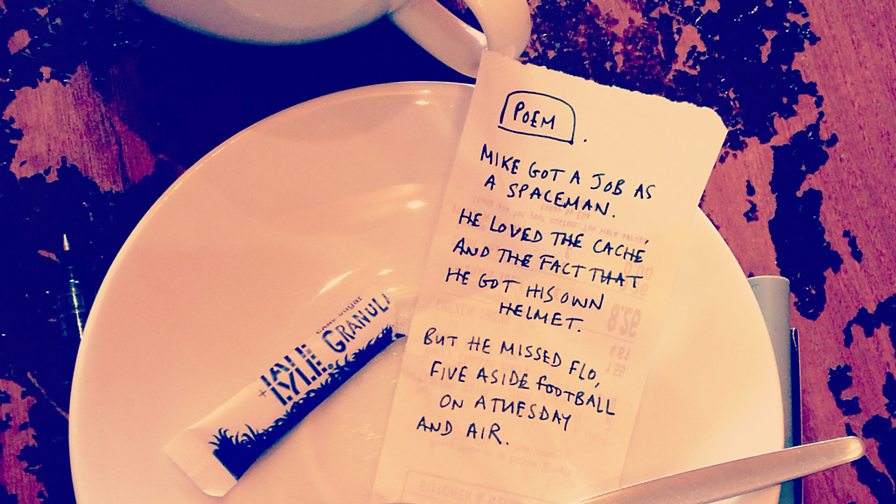 POEM.
MIKE GOT A JOB AS
A SPACEMAN.
HE LOVED THE CACHÉ
AND THE FACT THAT
HE GOT HIS OWN
HELMET.
BUT HE MISSED FLO,
FIVE ASIDE FOOTBALL
ON ATUESDAY
AND AIR.
CANE SUGAR
GRANUL
+ LYLE
928
BUTCHER &